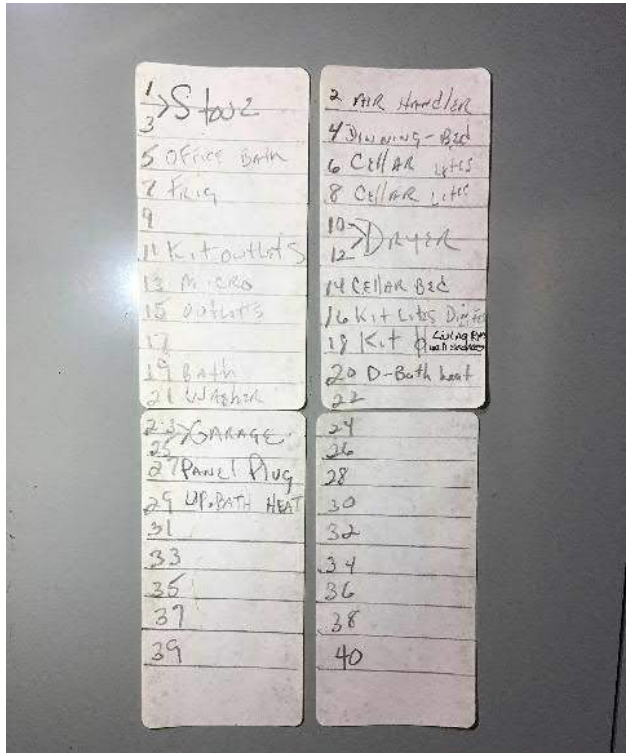 1
3 >Stove
5 OFFICE BATH
7 FRIG
9
11 Kit outlets
13 MICRO
15 outlets
17
19 BATH
21 WASHER
23 >GARAGE
25
27 PANEL Plug
29 UP.BATH HEAT
31
33
35
37
39
2 AIR HANdlER
4 DINNING-BEd
6 CEllAR LItES
8 CEllAR LItES
10
12 >DRYER
14 CEllAR BEd
16 Kit Lites
18 Kit LiviNg RM
20 D-Bath heat
22
24
26
28
30
32
34
36
38
40